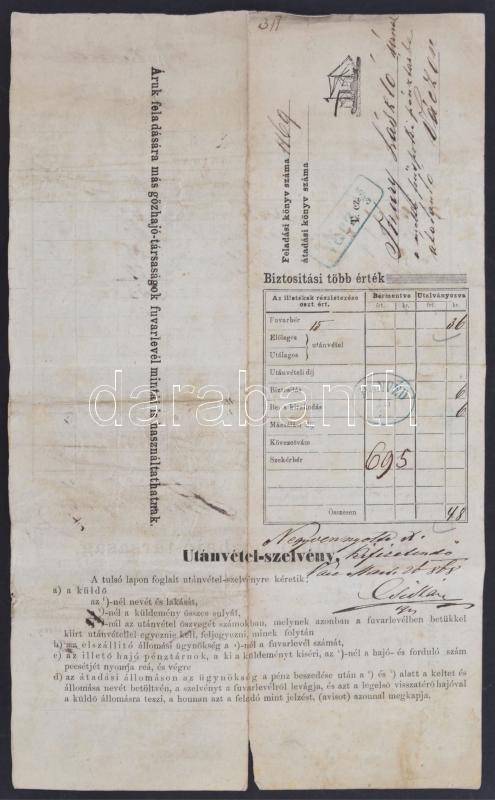 311
Áruk feladására más gőzhajó-társaságok fuvarlevél mintái is használtathatnak.
Feladási könyv száma 1869
átadási könyv száma
T. cz.
László
Biztositási több érték
Az illetékek részletezése oszt. ért.
Bérmentve
Utalványozva
frt. kr. frt. kr.
Fuvarbér 15 36
Előleges
Utólagos } utánvétel
Utánvételi díj
Biztositás 6
Be- s kirakodás 6
Mázsálási díj
Kövezetvám
Szekérbér 695
Összesen 48
darabanth
Negyvennyolcz x.
kifizetendő
Utánvétel-szelvény.
A tulsó lapon foglalt utánvétel-szelvényre kéretik:
a) a küldő
az ¹)-nél nevét és lakását,
²)-nél a küldemény összes sulyát,
³)-nál az utánvétel összegét számokban, melynek azonban a fuvarlevélben betükkel
kiirt utánvétellel egyeznie kell, feljegyezni, minek folytán
b) az elszállító állomási ügynökség a ⁴)-nél a fuvarlevél számát,
c) az illető hajó pénztárnok, a ki a küldeményt kiséri, az ⁵)-nél a hajó- és forduló szám
pecsétjét nyomja reá, és végre
d) az átadási állomáson az ügynökség a pénz beszedése után a ⁶) és ⁷) alatt a keltet és
állomása nevét betöltvén, a szelvényt a fuvarlevélről levágja, és azt a legelső visszatérő hajóval
a küldő állomásra teszi, a honnan azt a feladó mint jelzést, (avisot) azonnal megkapja.